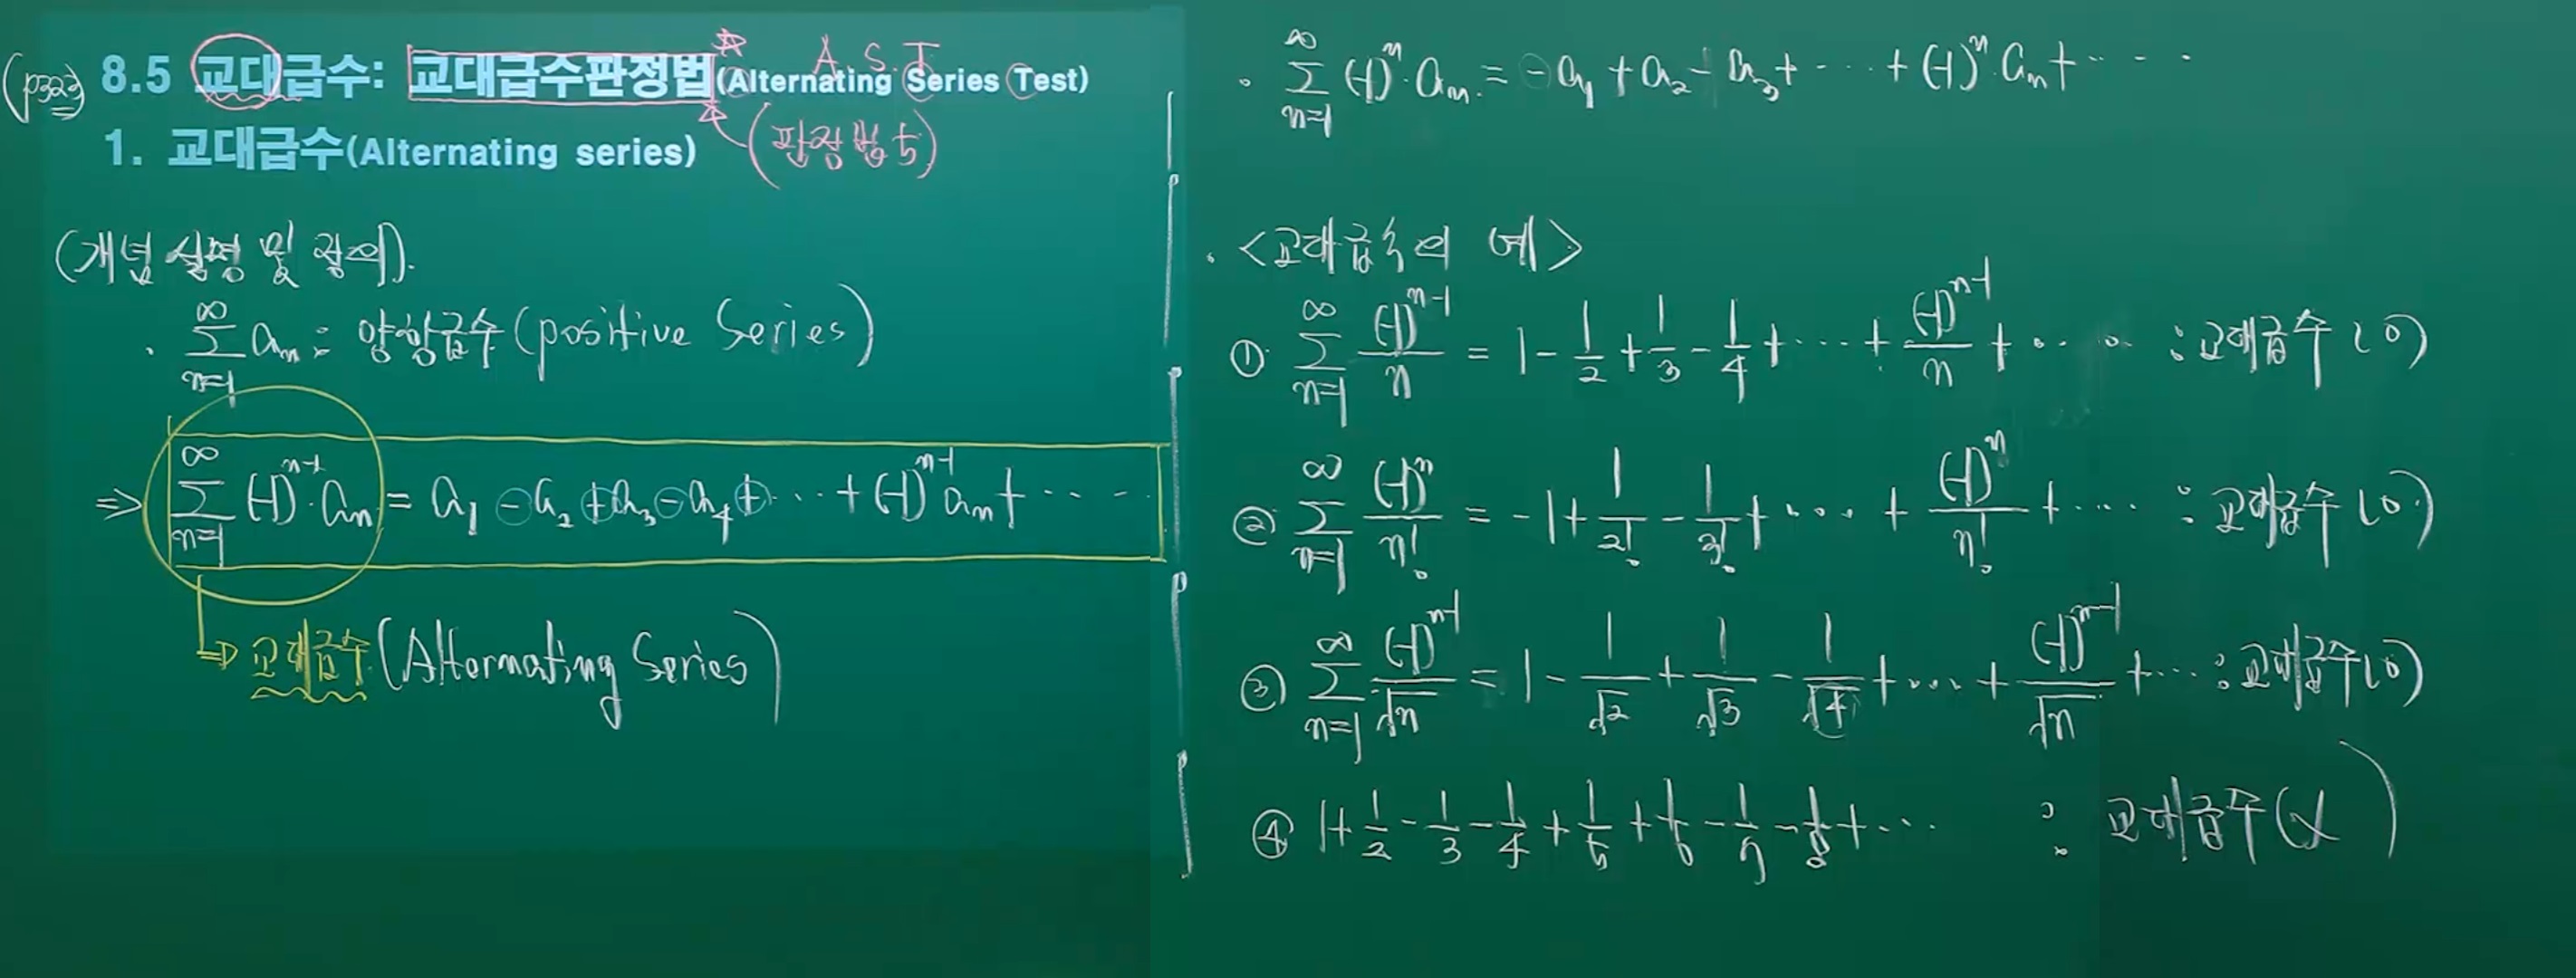 (p323) 8.5 교대급수: 교대급수판정법(Alternating Series Test)
A. S. T
1. 교대급수(Alternating series)
(판정법 5)
(개념 설명 및 정의).
· ∑_{n=1}^{∞} a_n : 양항급수(positive Series)
⇒ ∑_{n=1}^{∞} (-1)^{n-1}·a_n = a_1 - a_2 + a_3 - a_4 + ··· + (-1)^{n-1} a_n + ···
⇒ 교대급수(Alternating Series)
· ∑_{n=1}^{∞} (-1)^n·a_n = -a_1 + a_2 - a_3 + ··· + (-1)^n·a_n + ···
· <교대급수의 예>
① ∑_{n=1}^{∞} (-1)^{n-1}/n = 1 - 1/2 + 1/3 - 1/4 + ··· + (-1)^{n-1}/n + ··· : 교대급수(o)
② ∑_{n=1}^{∞} (-1)^n/n! = -1 + 1/2! - 1/3! + ··· + (-1)^n/n! + ··· : 교대급수(o)
③ ∑_{n=1}^{∞} (-1)^{n-1}/√n = 1 - 1/√2 + 1/√3 - 1/√4 + ··· + (-1)^{n-1}/√n + ··· : 교대급수(o)
④ 1 + 1/2 - 1/3 - 1/4 + 1/5 + 1/6 - 1/7 - 1/8 + ··· : 교대급수(x)